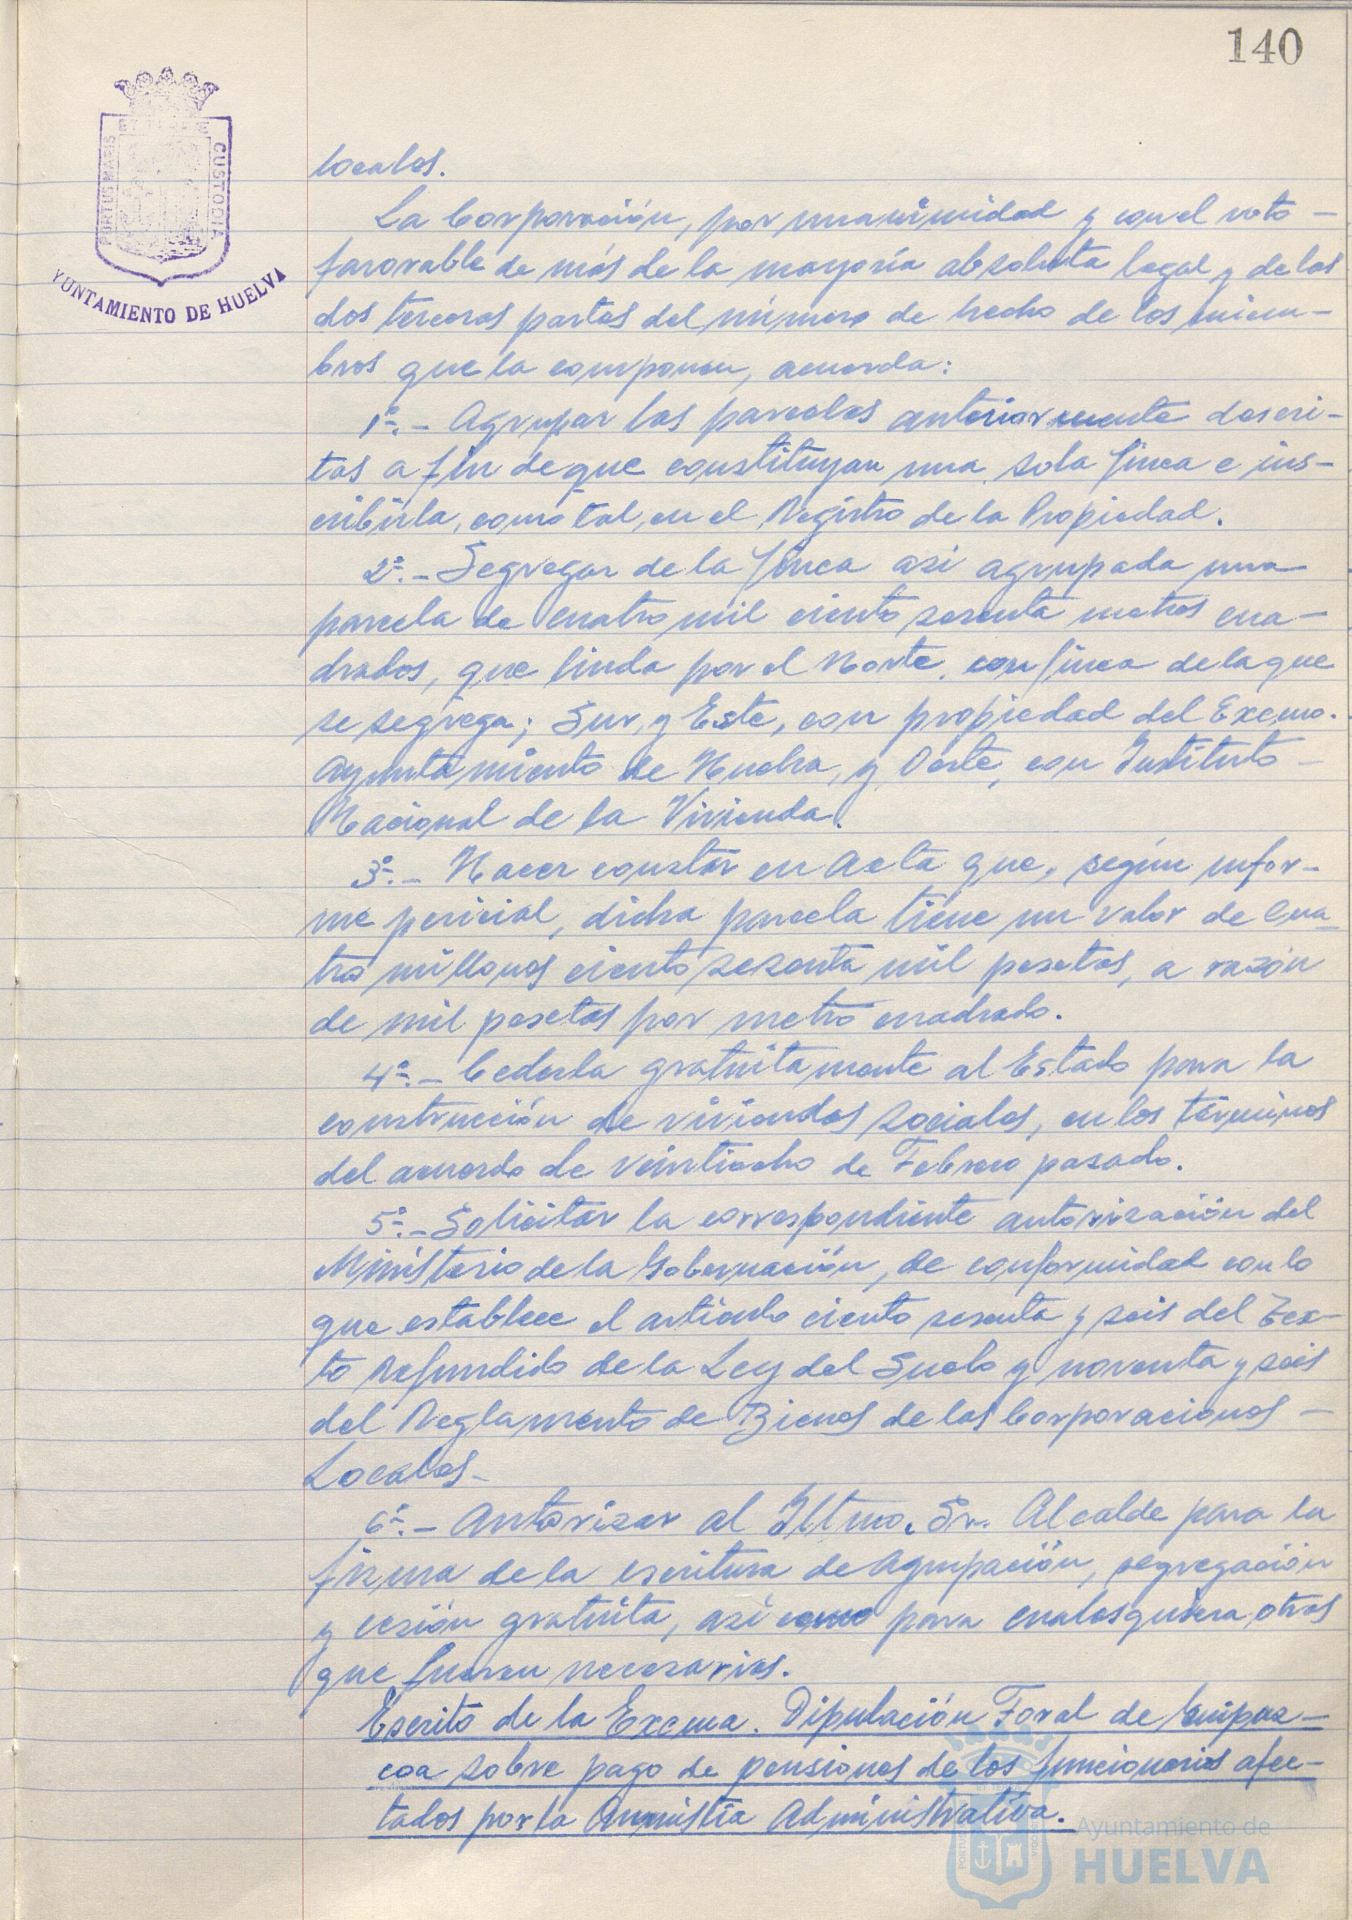 140
PORTUS MARIS
CUSTODIA
YUNTAMIENTO DE HUELVA
locales.
La Corporación, por unanimidad y con el voto -
favorable de más de la mayoría absoluta legal y de las
dos terceras partes del número de hecho de los miem-
bros que la componen, acuerda:
1º.- Agrupar las parcelas anteriormente descri-
tas a fin de que constituyan una sola finca e ins-
cribirla, como tal, en el Registro de la Propiedad.
2º.- Segregar de la finca así agrupada una
parcela de cuatro mil ciento sesenta metros cua-
drados, que linda por el Norte, con finca de la que
se segrega; Sur, y Este, con propiedad del Excmo.
Ayuntamiento de Huelva, y Oeste, con Instituto -
Nacional de la Vivienda.
3º.- Hacer constar en Acta que, según infor-
me pericial, dicha parcela tiene un valor de cua-
tro millones ciento sesenta mil pesetas, a razón
de mil pesetas por metro cuadrado.
4º.- Cederla gratuitamente al Estado para la
construcción de viviendas sociales, en los términos
del acuerdo de veintiocho de Febrero pasado.
5º.- Solicitar la correspondiente autorización del
Ministerio de la Gobernación, de conformidad con lo
que establece el artículo ciento sesenta y seis del Tex-
to Refundido de la Ley del Suelo y noventa y seis
del Reglamento de Bienes de las Corporaciones -
Locales.
6º.- Autorizar al Iltmo. Sr. Alcalde para la
firma de la escritura de Agrupación, segregación
y cesión gratuita, así como para cualesquiera otras
que fueren necesarias.
Escrito de la Excma. Diputación Foral de Guipuz-
coa sobre pago de pensiones de los funcionarios afec-
tados por la Amnistía Administrativa.
Ayuntamiento de
HUELVA